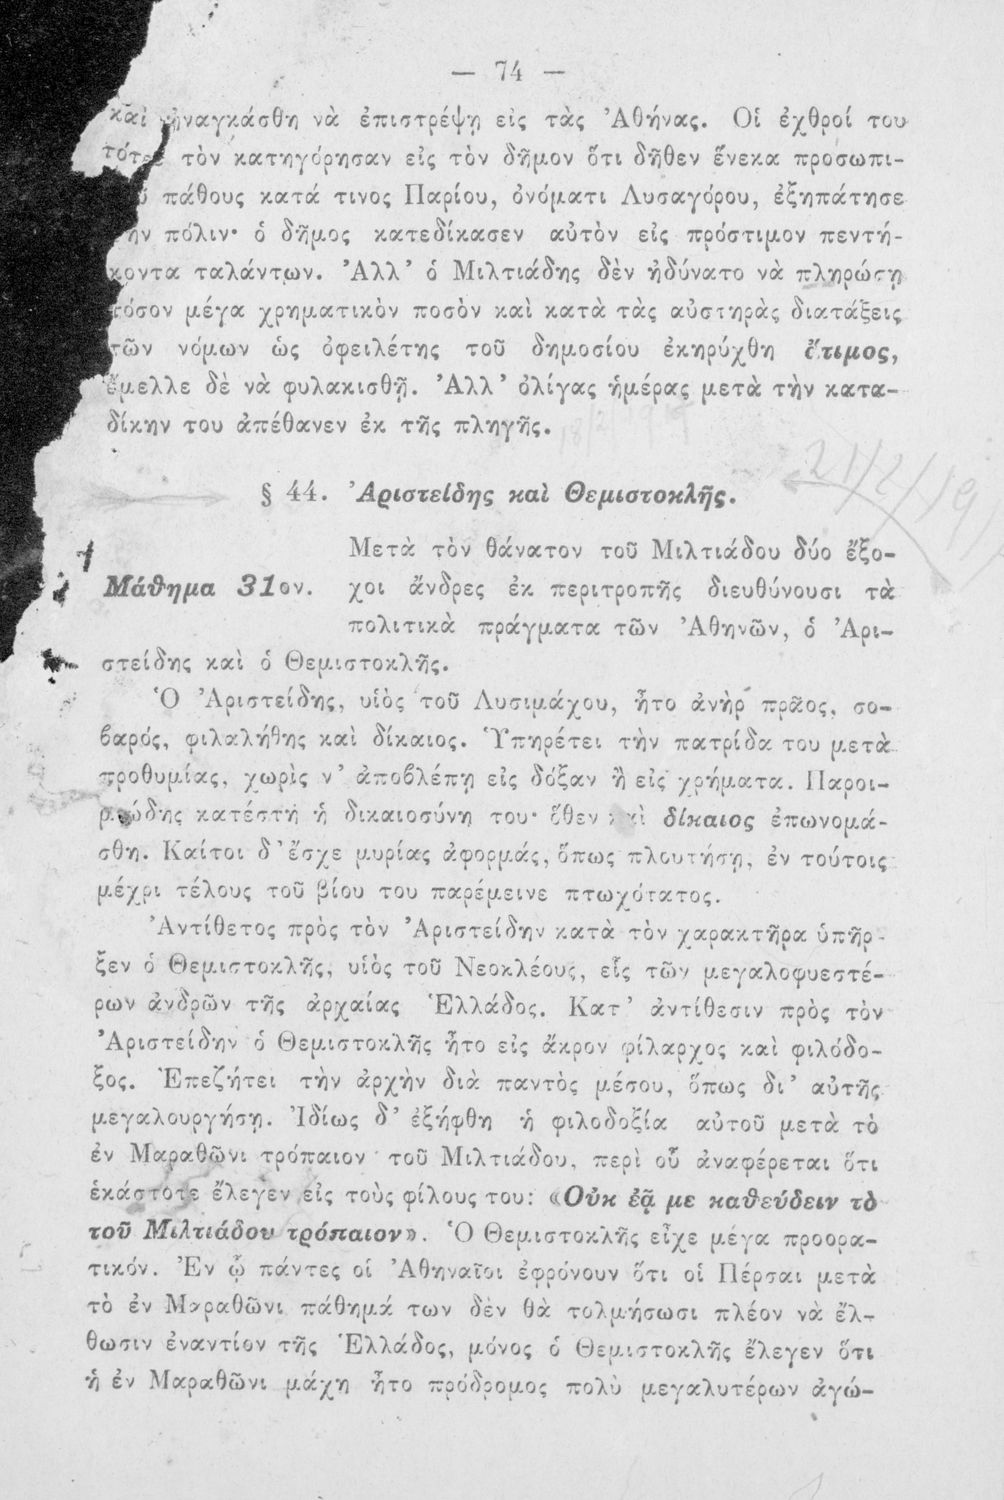 — 74 —
καὶ ἠναγκάσθη νὰ ἐπιστρέψῃ εἰς τὰς Ἀθήνας. Οἱ ἐχθροί του
τότε τὸν κατηγόρησαν εἰς τὸν δῆμον ὅτι δῆθεν ἕνεκα προσωπι-
πάθους κατά τινος Παρίου, ὀνόματι Λυσαγόρου, ἐξηπάτησε
ην πόλιν· ὁ δῆμος κατεδίκασεν αὐτὸν εἰς πρόστιμον πεντή-
κοντα ταλάντων. Ἀλλ' ὁ Μιλτιάδης δὲν ἠδύνατο νὰ πληρώσῃ
τόσον μέγα χρηματικὸν ποσὸν καὶ κατὰ τὰς αὐστηρὰς διατάξεις
τῶν νόμων ὡς ὀφειλέτης τοῦ δημοσίου ἐκηρύχθη ἄτιμος,
ἔμελλε δὲ νὰ φυλακισθῇ. Ἀλλ' ὀλίγας ἡμέρας μετὰ τὴν κατα-
δίκην του ἀπέθανεν ἐκ τῆς πληγῆς.
§ 44. Ἀριστείδης καὶ Θεμιστοκλῆς.
21/2/19
Μάθημα 31ον.
Μετὰ τὸν θάνατον τοῦ Μιλτιάδου δύο ἔξο-
χοι ἄνδρες ἐκ περιτροπῆς διευθύνουσι τὰ
πολιτικὰ πράγματα τῶν Ἀθηνῶν, ὁ Ἀρι-
στείδης καὶ ὁ Θεμιστοκλῆς.
Ὁ Ἀριστείδης, υἱὸς τοῦ Λυσιμάχου, ἦτο ἀνὴρ πρᾶος, σο-
βαρός, φιλαλήθης καὶ δίκαιος. Ὑπηρέτει τὴν πατρίδα του μετὰ
προθυμίας, χωρὶς ν' ἀποβλέπῃ εἰς δόξαν ἢ εἰς χρήματα. Παροι-
μιώδης κατέστη ἡ δικαιοσύνη του· ὅθεν καὶ δίκαιος ἐπωνομά-
σθη. Καίτοι δ' ἔσχε μυρίας ἀφορμάς, ὅπως πλουτήσῃ, ἐν τούτοις
μέχρι τέλους τοῦ βίου του παρέμεινε πτωχότατος.
Ἀντίθετος πρὸς τὸν Ἀριστείδην κατὰ τὸν χαρακτῆρα ὑπῆρ-
ξεν ὁ Θεμιστοκλῆς, υἱὸς τοῦ Νεοκλέους, εἷς τῶν μεγαλοφυεστέ-
ρων ἀνδρῶν τῆς ἀρχαίας Ἑλλάδος. Κατ' ἀντίθεσιν πρὸς τὸν
Ἀριστείδην ὁ Θεμιστοκλῆς ἦτο εἰς ἄκρον φίλαρχος καὶ φιλόδο-
ξος. Ἐπεζήτει τὴν ἀρχὴν διὰ παντὸς μέσου, ὅπως δι' αὐτῆς
μεγαλουργήσῃ. Ἰδίως δ' ἐξήφθη ἡ φιλοδοξία αὐτοῦ μετὰ τὸ
ἐν Μαραθῶνι τρόπαιον τοῦ Μιλτιάδου, περὶ οὗ ἀναφέρεται ὅτι
ἑκάστοτε ἔλεγεν εἰς τοὺς φίλους του: «Οὐκ ἐᾷ με καθεύδειν τὸ
τοῦ Μιλτιάδου τρόπαιον». Ὁ Θεμιστοκλῆς εἶχε μέγα προορα-
τικόν. Ἐν ᾧ πάντες οἱ Ἀθηναῖοι ἐφρόνουν ὅτι οἱ Πέρσαι μετὰ
τὸ ἐν Μαραθῶνι πάθημά των δὲν θὰ τολμήσωσι πλέον νὰ ἔλ-
θωσιν ἐναντίον τῆς Ἑλλάδος, μόνος ὁ Θεμιστοκλῆς ἔλεγεν ὅτι
ἡ ἐν Μαραθῶνι μάχη ἦτο πρόδρομος πολὺ μεγαλυτέρων ἀγώ-